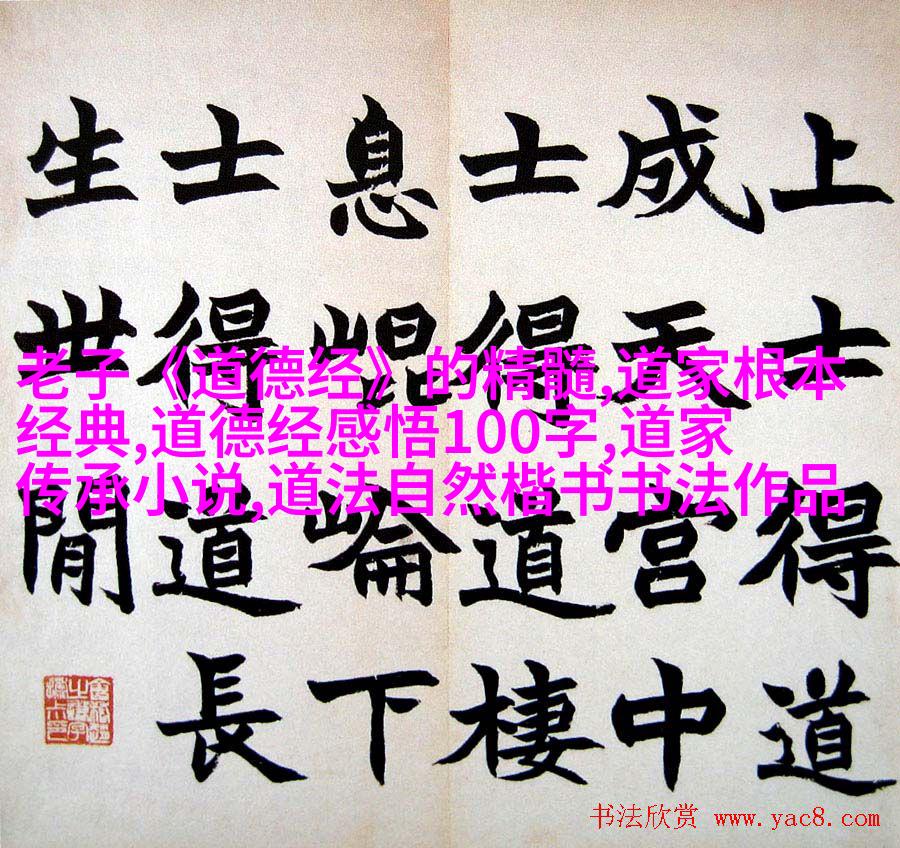 上士得道
成天宫中
士得道棲
息崐崘下
士得道長
生世閒
老子《道德经》的精髓,道家根本
经典,道德经感悟100字,道家
传承小说,道法自然楷书书法作品
书法欣赏 www.yac8.com